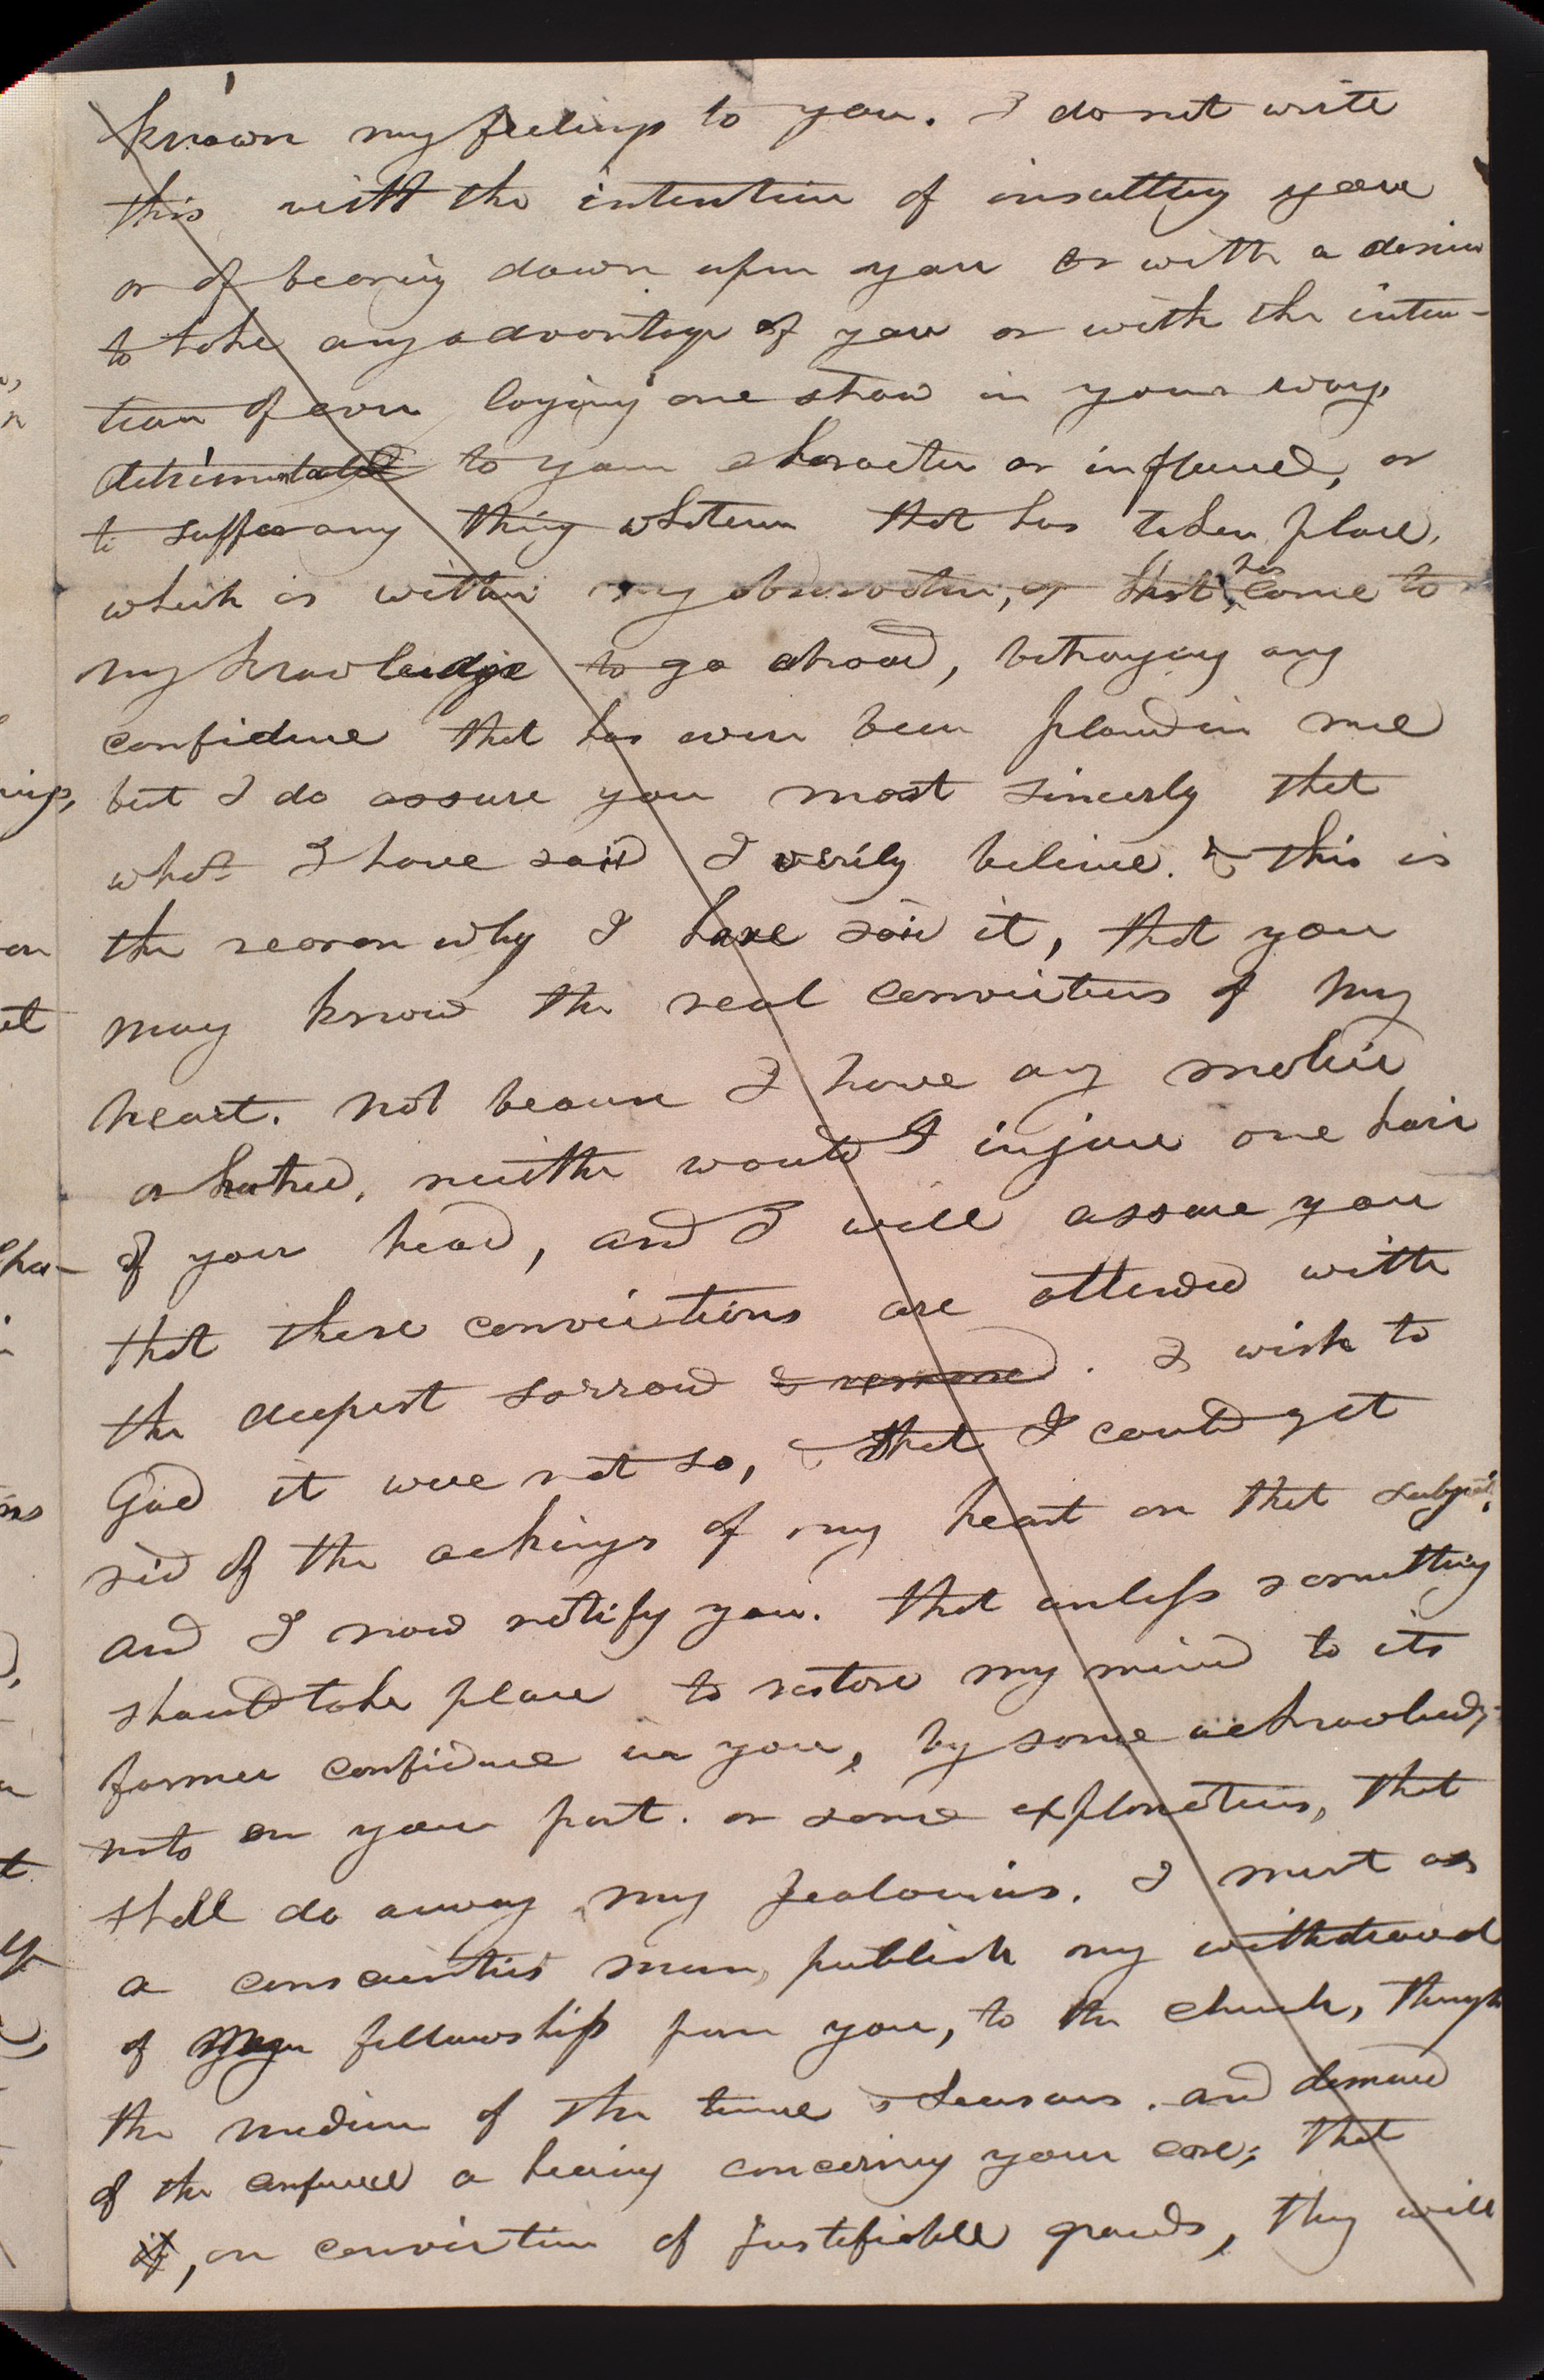 known my feelings to you. I do not write
this with the intention of insulting you
or of bearing down upon you or with a desire
to take any advantage of you or with the inten-
tion of even laying one straw in your way,
detrimentable to your character or influence, or
to suffer any thing whatever that has taken place,
which is within my observation, or that has come to
my knowledge to go abroad, betraying any
confidence that has ever been placed in me
but I do assure you most sincerely that
what I have said I verily believe. & this is
the reason why I have said it, that you
may know the real convictions of my
heart. not because I have any malice
or hatred, neither would I injure one hair
of your head, and I will assure you
that these convictions are attended with
the deepest sorrow & remorse. I wish to
God it were not so, & that I could get
rid of the achings of my heart on that subject;
and I now notify you. that unless something
should take place to restore my mind to its
former confidence in you, by some acknowledg-
nts on your part. or some explanations, that
shall do away my Jealousies. I must as
a conscientius man, publish my withdrawal
of my fellowship from you, to the church, through
the medium of the times & seasons. and demand
of the confrence a hearing concerning your case; that
if, on conviction of Justifiable grounds, they will